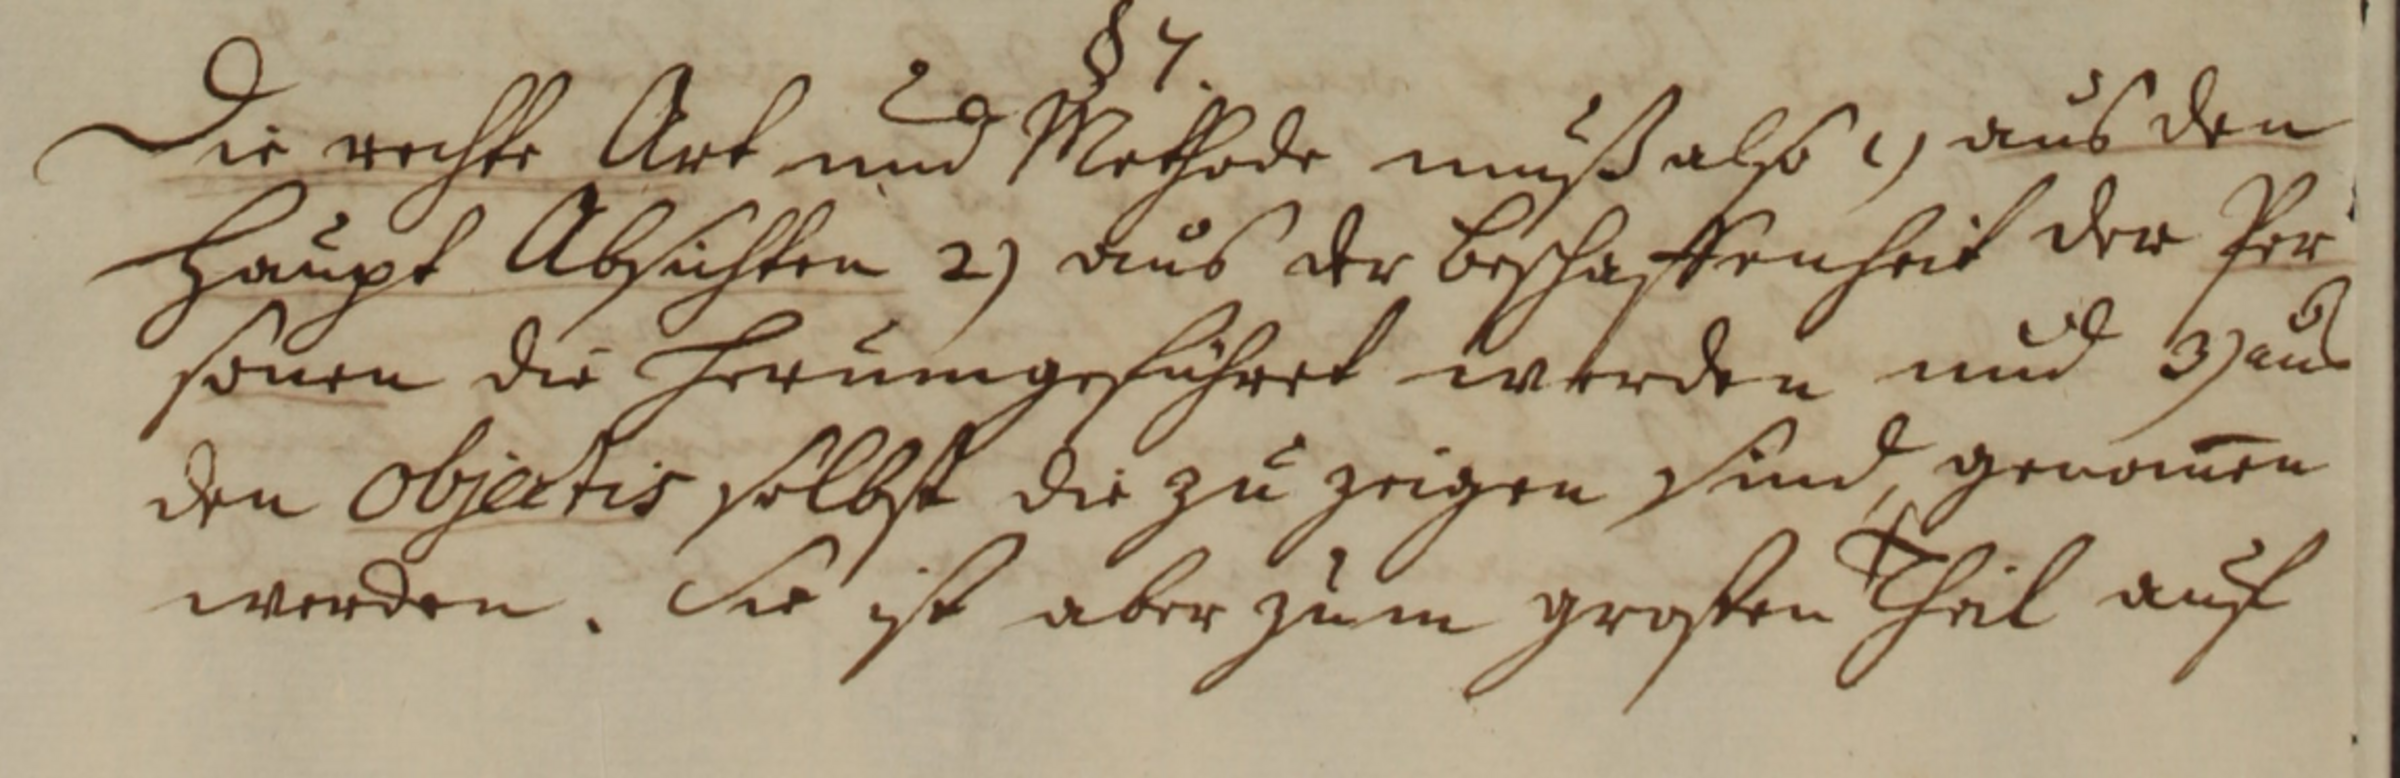 § 7.
Die rechte Art und Methode muß also 1) aus den
Haupt Absichten 2) aus der Beschaffenheit der Per
sonen die herumgeführet werden und 3) aus
den objectis selbst die zu zeigen sind, genom̄en
werden. Sie ist aber zum grosten Theil auf